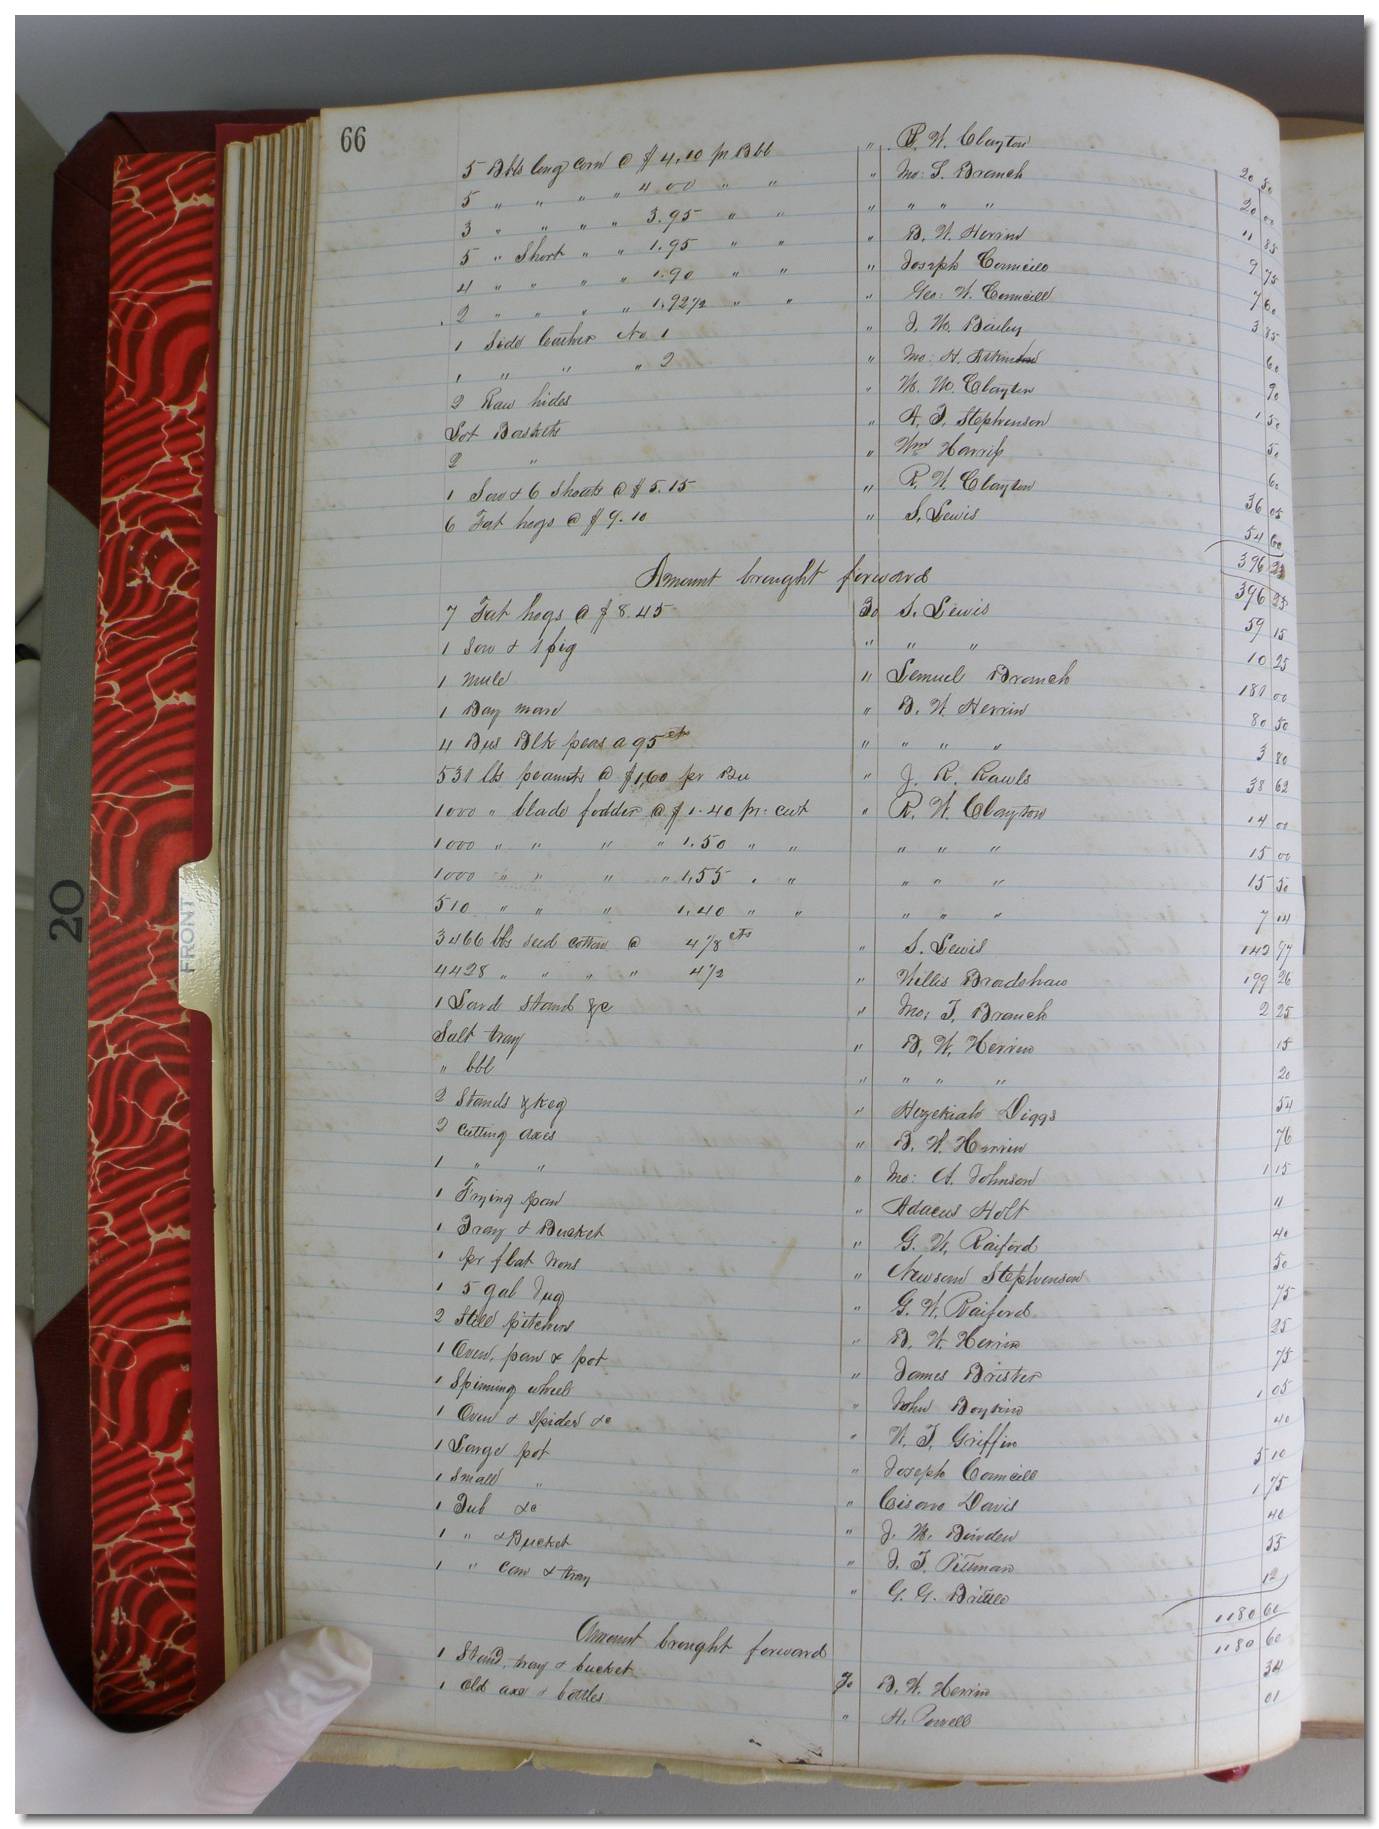 66
5 Bbls long corn @ $4.10 pr Bbl " P. W. Clayton 20 50
5 " " " " 4 00 " " " Mo: S. Branch 20 00
3 " " " " 3.95 " " " " " " 11 85
5 " Short " " 1.95 " " " B. W. Herrin 9 75
4 " " " " 1.90 " " " Joseph Councill 7 60
2 " " " " 1.92½ " " " Geo: W. Councill 3 85
1 Side leather No 1 " J. W. Bailey 60
1 " " " 2 " Mo: H. 90
2 Raw hides " W. W. Clayton 1 50
Lot Baskets " A. J. Stephenson 50
2 " " Wm Harriss 60
1 Sow & 6 Shoats @ $5.15 " R. W. Clayton 36 05
6 Fat hogs @ $9.10 " S. Lewis 54 60
396 25
Amount brought forward 396 25
7 Fat hogs @ $8.45 To S. Lewis 59 15
1 Sow & 1 pig " " " 10 25
1 Mule " Lemuel Branch 181 00
1 Bay mare " B. W. Herrin 80 50
4 Bus Blk peas a 95 cts " " " " 3 80
531 lbs peanuts @ $1.60 pr Bu " J. R. Rawls 38 62
1000 " blade fodder @ $1.40 pr. cwt " R. W. Clayton 14 00
1000 " " " " 1.50 " " " " " 15 00
1000 " " " " 1.55 " " " " " 15 50
510 " " " 1.40 " " " " " 7 14
3466 lbs seed cotton @ 4⅛ cts " S. Lewis 142 97
4428 " " " " 4½ " Willis Bradshaw 199 26
1 Lard stand &c " Mo: T. Branch 2 25
Salt tray " B. W. Herrin 15
" bbl " " " " 20
2 Stands & keg " Hezekiah Diggs 54
2 Cutting axes " B. W. Herrin 76
1 " " " Mo: A. Johnson 1 15
1 Frying pan " Adacus Holt 11
1 Tray & Bucket " G. W. Raiford 40
1 pr flat Irons " Newsom Stephenson 50
1 5 gal Jug " G. W. Raiford 75
2 Still pitchers " B. W. Herrin 25
1 Oven, pan & pot " James Brister 75
1 Spinning wheel " John Boykin 1 05
1 Oven & Spider &c " W. T. Griffin 40
1 Large pot " Joseph Councill 5 10
1 Small " " Cisaro Davis 1 75
1 Tub &c " J. W. Bowden 40
1 " & Bucket " J. T. Pittman 55
1 " can & tray " G. G. Brittle 12
1180 60
Amount brought forward 1180 60
1 Stand, tray & bucket To B. W. Herrin 34
1 old axe & bottles " H. Powell 01
20
FRONT